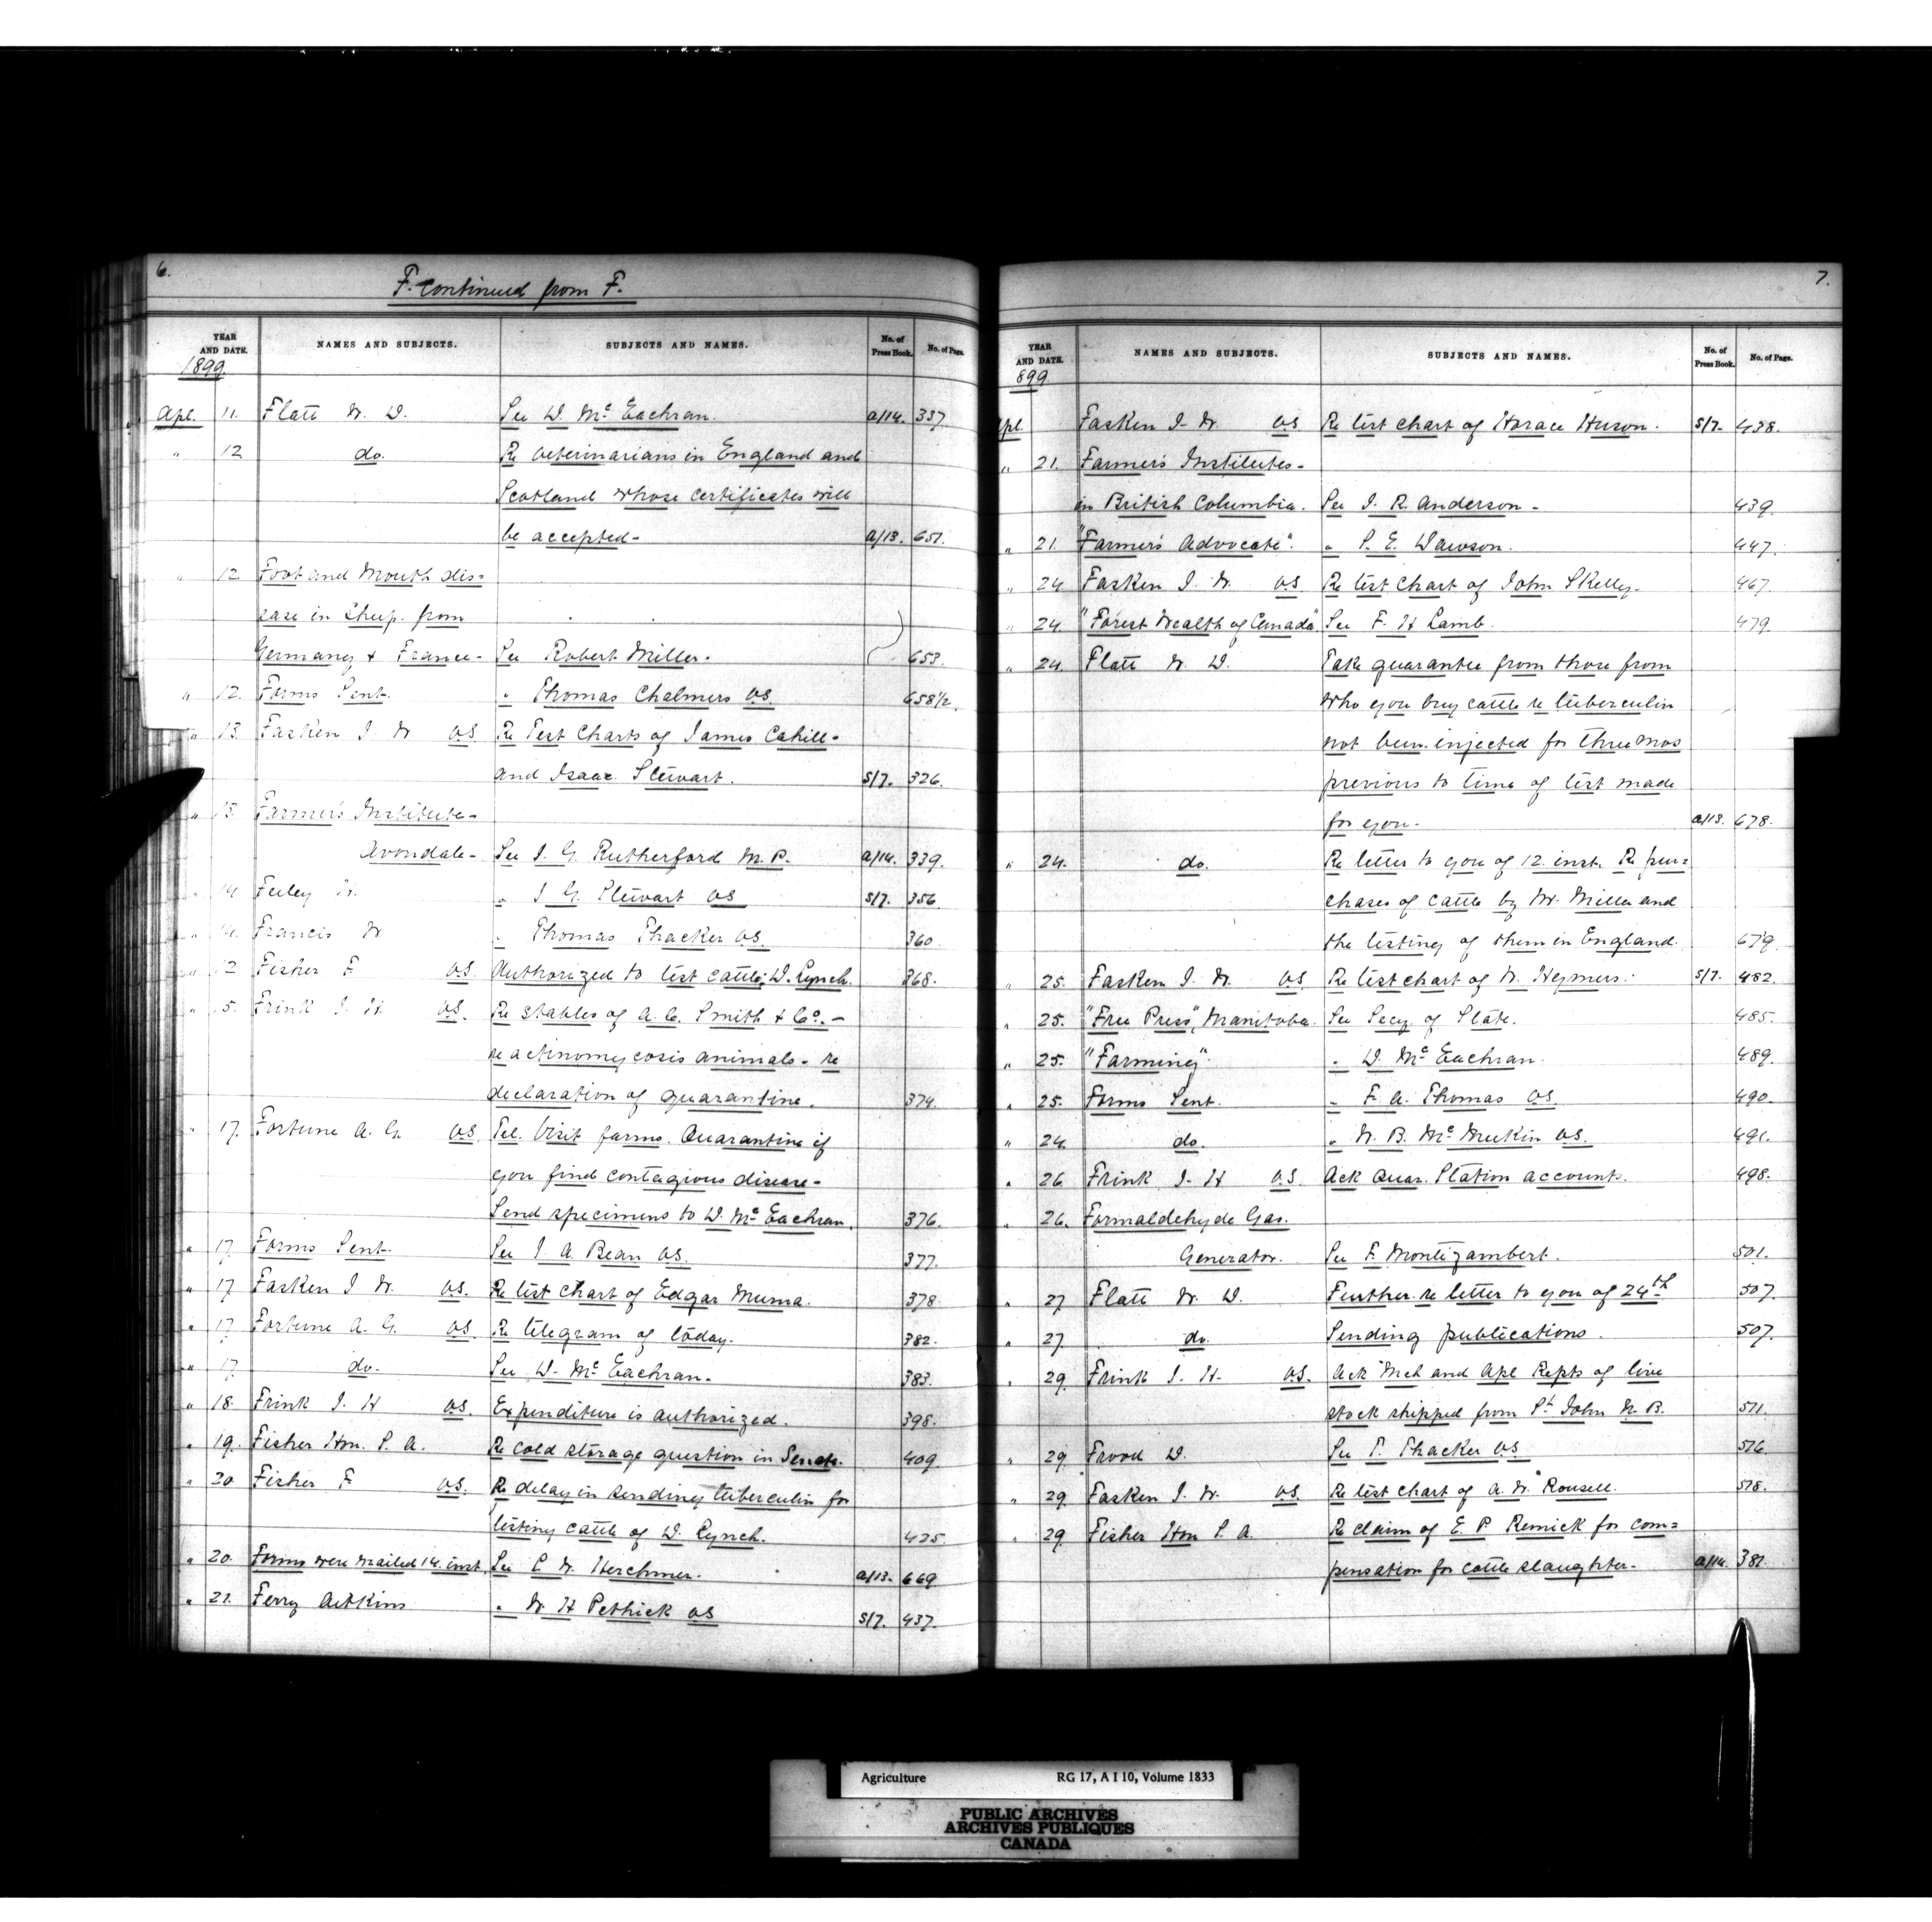 6.
F. continued from F.
YEAR AND DATE. NAMES AND SUBJECTS. SUBJECTS AND NAMES. No. of Press Book. No. of Page.
1899
Apl. 11. Flatt W. D. See D. Mc Eachran. a/14. 337
" 12 do. Re Veterinarians in England and
Scotland whose certificates will
be accepted- a/13. 651.
" 12 Foot and Mouth dis=
ease in Sheep. from
Germany & France- See Robert Miller. 653.
" 12. Forms Sent. " Thomas Chalmers V.S. 658 1/2.
" 13. Fasken J. W. V.S. Re Test Charts of James Cahill-
and Isaac Stewart. S/7. 326.
" 13. Farmer's Institute-
Avondale- See J. G. Rutherford M.P. a/14. 339.
" 14. Feeley " J. G. Stewart V.S S/7. 356
" 14. Francis W " Thomas Thacker V.S. 360.
" 12 Fisher F. V.S. Authorized to test cattle; D. Lynch. 368.
" 15. Frink J. H. V.S. Re stables of A. C. Smith & Co. -
re actinomycosis animals - re
declaration of quarantine. 374.
" 17. Fortune A. G. V.S. Tel. Visit farms. Quarantine if
you find contagious disease-
Send specimens to D. Mc Eachran. 376.
" 17. Forms Sent. See J. A. Bean V.S. 377.
" 17. Fasken J. W. V.S. Re test chart of Edgar Muma. 378
" 17 Fortune A. G. V.S. Re telegram of today. 382.
" 17 do. See D. Mc Eachran. 383.
" 18. Frink J. H V.S. Expenditure is authorized. 398.
" 19. Fisher Hon. S. A. Re cold storage question in Senate. 409
" 20 Fisher F V.S. Re delay in sending tuberculin for
testing cattle of D. Lynch. 425
" 20. Forms were mailed 14. inst. See L. W. Herchmer. a/13. 669
" 21. Ferry Aitkins " W. H Pethick V.S S/7. 437.
7.
YEAR AND DATE. NAMES AND SUBJECTS. SUBJECTS AND NAMES. No. of Press Book. No. of Page.
899
Apl. Fasken J. W. V.S Re test chart of Horace Huson. S/7. 438.
" 21. Farmer's Institutes-
in British Columbia. See J. R. Anderson - 439.
" 21. "Farmer's Advocate". " S. E. Dawson. 447.
" 24 Fasken J. W. V.S. Re test chart of John Skelly. 467.
" 24. "Forest Wealth of Canada" See F. H Lamb. 479.
" 24. Flatt W. D. Take guarantee from those from
who you buy cattle re tuberculin
not been injected for three mos
previous to time of test made
for you. a/13. 678.
" 24. do. Re letter to you of 12. inst. Re pur=
chases of cattle by Mr. Miller and
the testing of them in England. 679.
" 25. Fasken J. W. V.S Re test chart of W. Heymers. S/7. 482.
" 25. "Free Press", Manitoba. See Secy. of State. 485.
" 25. "Farming" " D. Mc Eachran. 489.
" 25. Forms Sent. " F. A. Thomas V.S. 490.
" 24. do. " W. B. Mc Mukin V.S. 491.
" 26 Frink J. H V.S. Ack Quar. Station accounts. 498.
" 26. Formaldehyde Gas.
Generator. See F. Montizambert. 501.
" 27 Flatt W. D. Further re letter to you of 24th 507
" 27 do. Sending publications. 507.
" 29 Frink J. H. V.S. Ack Mch and Apl Repts of live
stock shipped from St John N. B. 511.
" 29. Frood D. See T. Thacker V.S 516.
" 29 Fasken J. W. V.S. Re test chart of A. W. Rousell. 518.
" 29. Fisher Hon S. A. Re claim of E. P. Remick for com=
pensation for cattle slaughter. a/14. 381.
Agriculture RG 17, A I 10, Volume 1833
PUBLIC ARCHIVES
ARCHIVES PUBLIQUES
CANADA